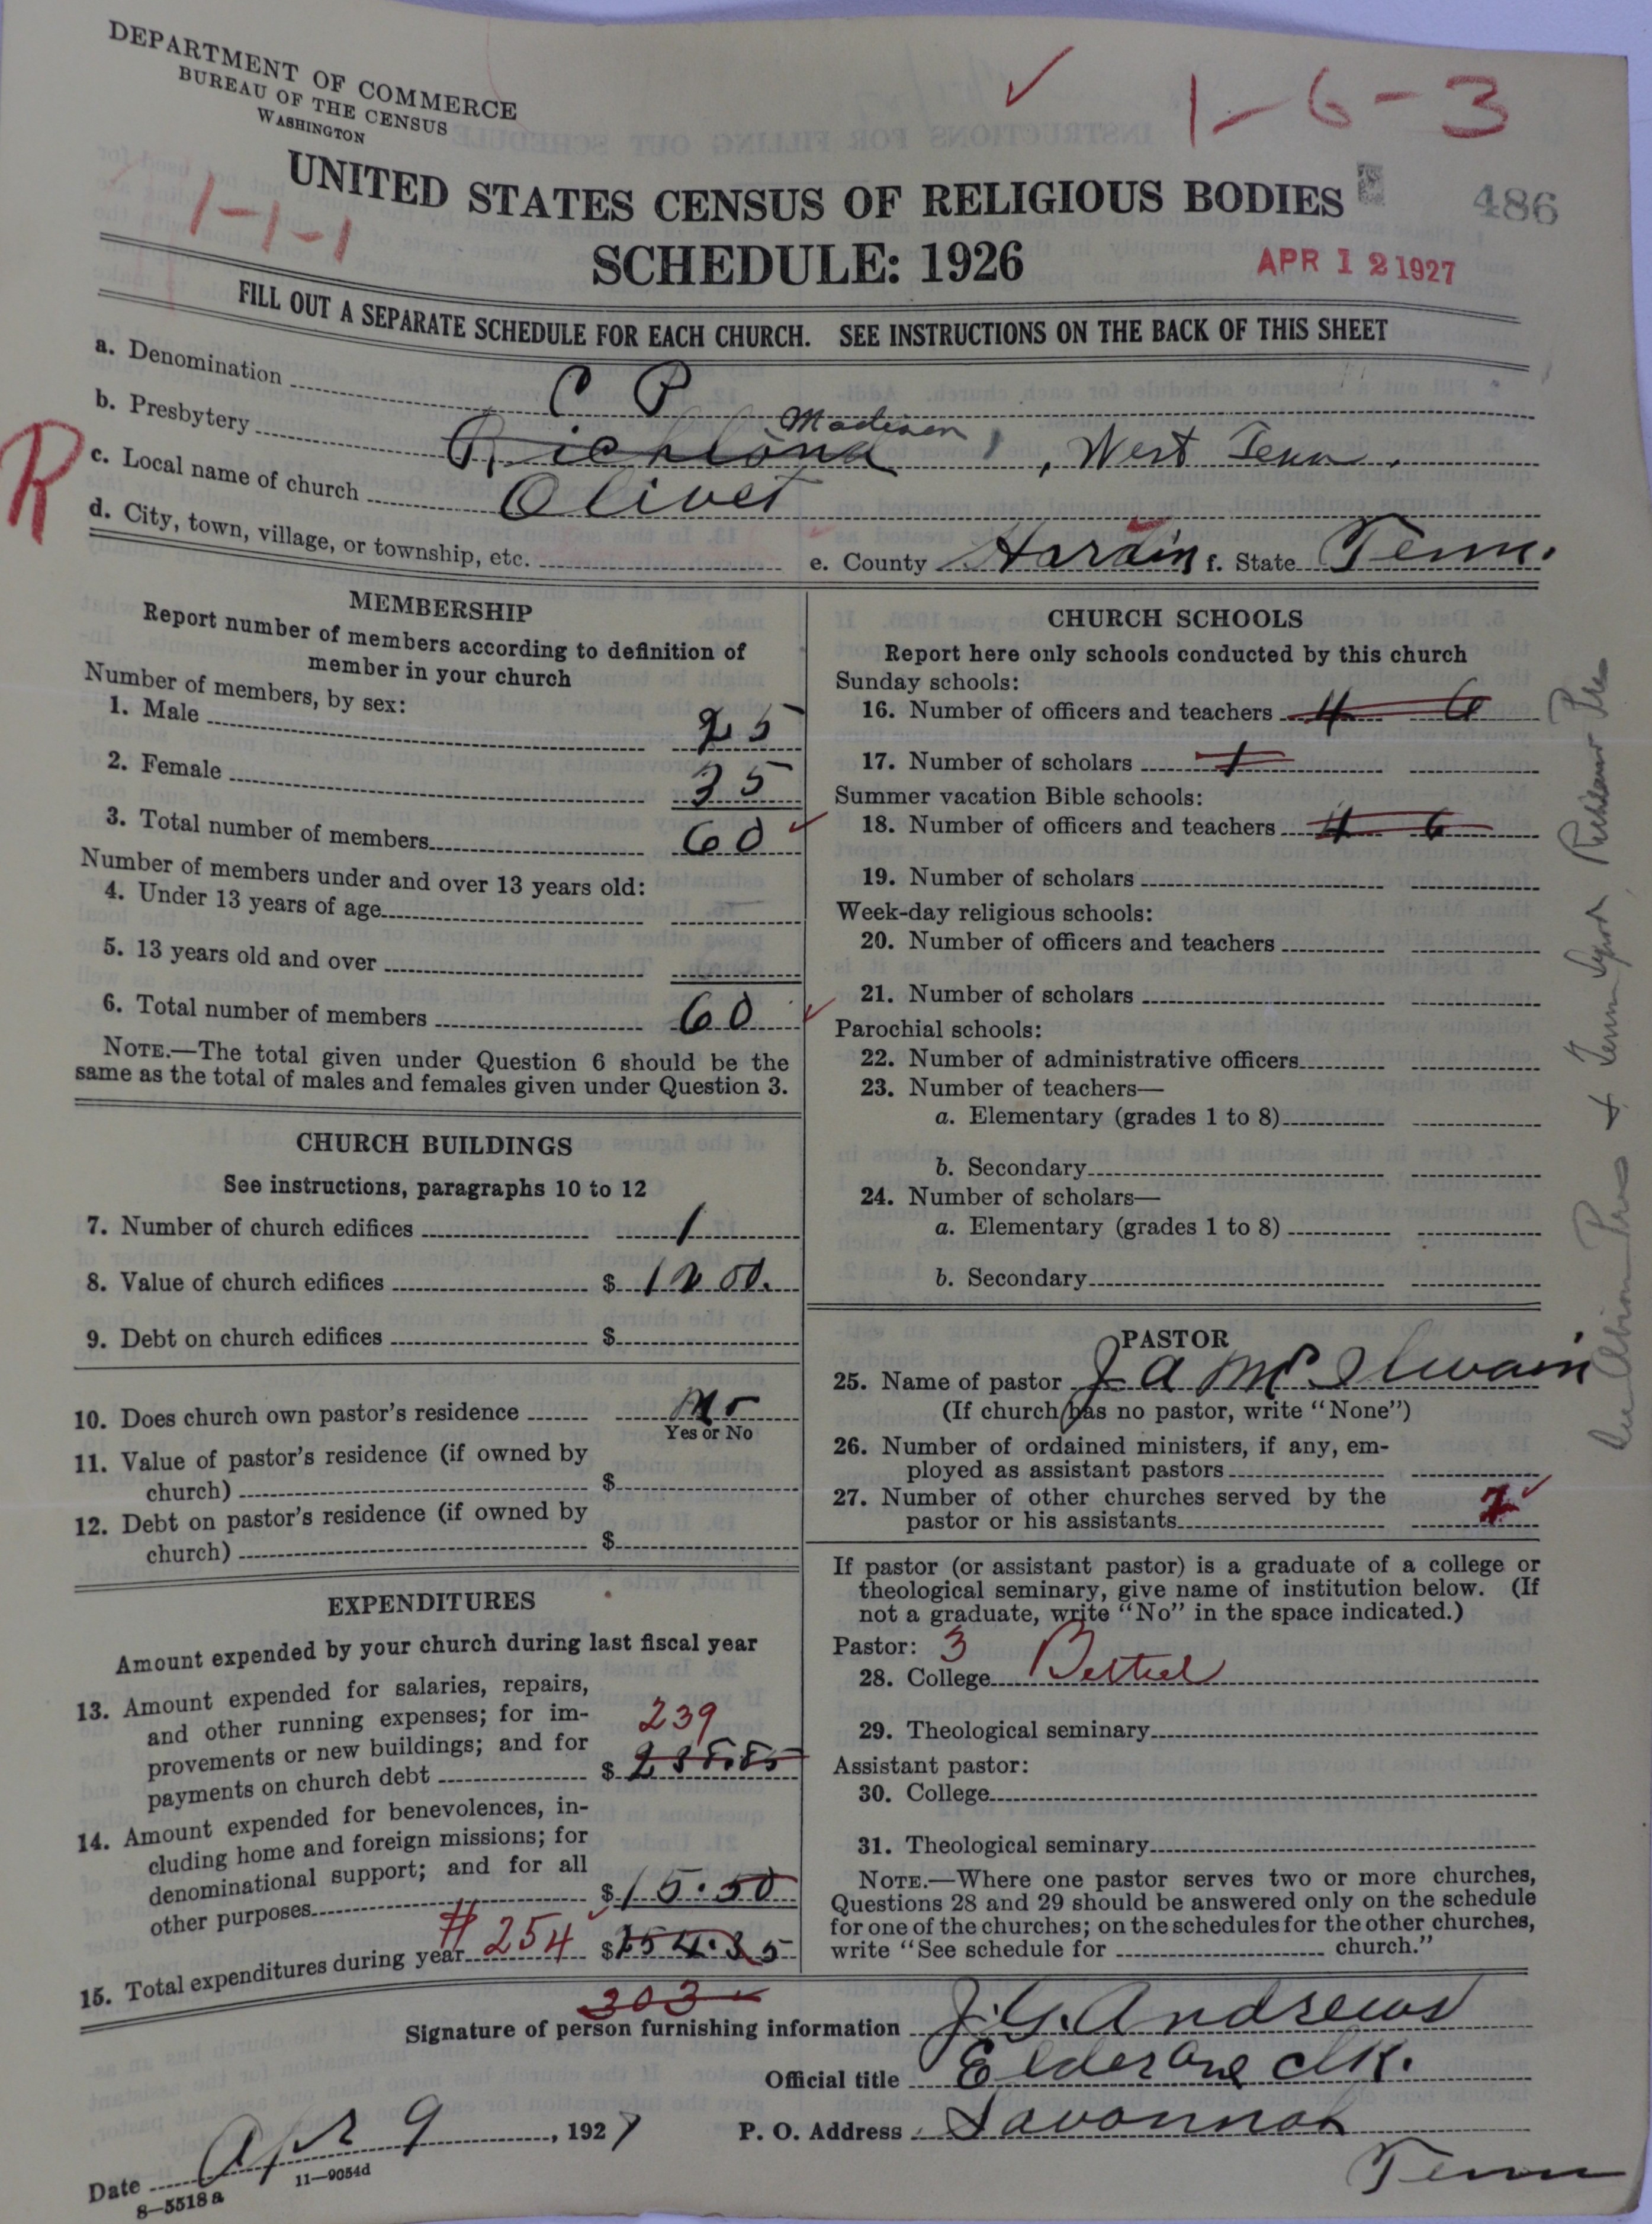 DEPARTMENT OF COMMERCE
BUREAU OF THE CENSUS
WASHINGTON
1-6-3
UNITED STATES CENSUS OF RELIGIOUS BODIES
486
1-1-1
SCHEDULE: 1926
APR 12 1927
FILL OUT A SEPARATE SCHEDULE FOR EACH CHURCH. SEE INSTRUCTIONS ON THE BACK OF THIS SHEET
R
a. Denomination C P
b. Presbytery Richland Madison, West Tenn.
c. Local name of church Olivet
d. City, town, village, or township, etc.
e. County Hardin f. State Tenn.
MEMBERSHIP
Report number of members according to definition of
member in your church
Number of members, by sex:
1. Male 25
2. Female 35
3. Total number of members 60
Number of members under and over 13 years old:
4. Under 13 years of age
5. 13 years old and over
6. Total number of members 60
NOTE.—The total given under Question 6 should be the
same as the total of males and females given under Question 3.
CHURCH BUILDINGS
See instructions, paragraphs 10 to 12
7. Number of church edifices 1
8. Value of church edifices $ 1200.
9. Debt on church edifices $
10. Does church own pastor's residence No
Yes or No
11. Value of pastor's residence (if owned by
church) $
12. Debt on pastor's residence (if owned by
church) $
EXPENDITURES
Amount expended by your church during last fiscal year
13. Amount expended for salaries, repairs,
and other running expenses; for im-
provements or new buildings; and for
239
payments on church debt $ 238.85
14. Amount expended for benevolences, in-
cluding home and foreign missions; for
denominational support; and for all
other purposes $ 15.50
15. Total expenditures during year # 254 $ 254.35
303
CHURCH SCHOOLS
Report here only schools conducted by this church
Sunday schools:
16. Number of officers and teachers 4 6
17. Number of scholars 1
Summer vacation Bible schools:
18. Number of officers and teachers 4 6
19. Number of scholars
Week-day religious schools:
20. Number of officers and teachers
21. Number of scholars
Parochial schools:
22. Number of administrative officers
23. Number of teachers—
a. Elementary (grades 1 to 8)
b. Secondary
24. Number of scholars—
a. Elementary (grades 1 to 8)
b. Secondary
PASTOR
25. Name of pastor J A McIlwain
(If church has no pastor, write "None")
26. Number of ordained ministers, if any, em-
ployed as assistant pastors
27. Number of other churches served by the
pastor or his assistants
If pastor (or assistant pastor) is a graduate of a college or
theological seminary, give name of institution below. (If
not a graduate, write "No" in the space indicated.)
Pastor: 3
28. College Bethel
29. Theological seminary
Assistant pastor:
30. College
31. Theological seminary
NOTE.—Where one pastor serves two or more churches,
Questions 28 and 29 should be answered only on the schedule
for one of the churches; on the schedules for the other churches,
write "See schedule for church."
Signature of person furnishing information J. G. Andrews
Official title Elder and clk.
Date Apr 9, 1927 P. O. Address Savannah
Tenn
8—5518 a 11—9054d